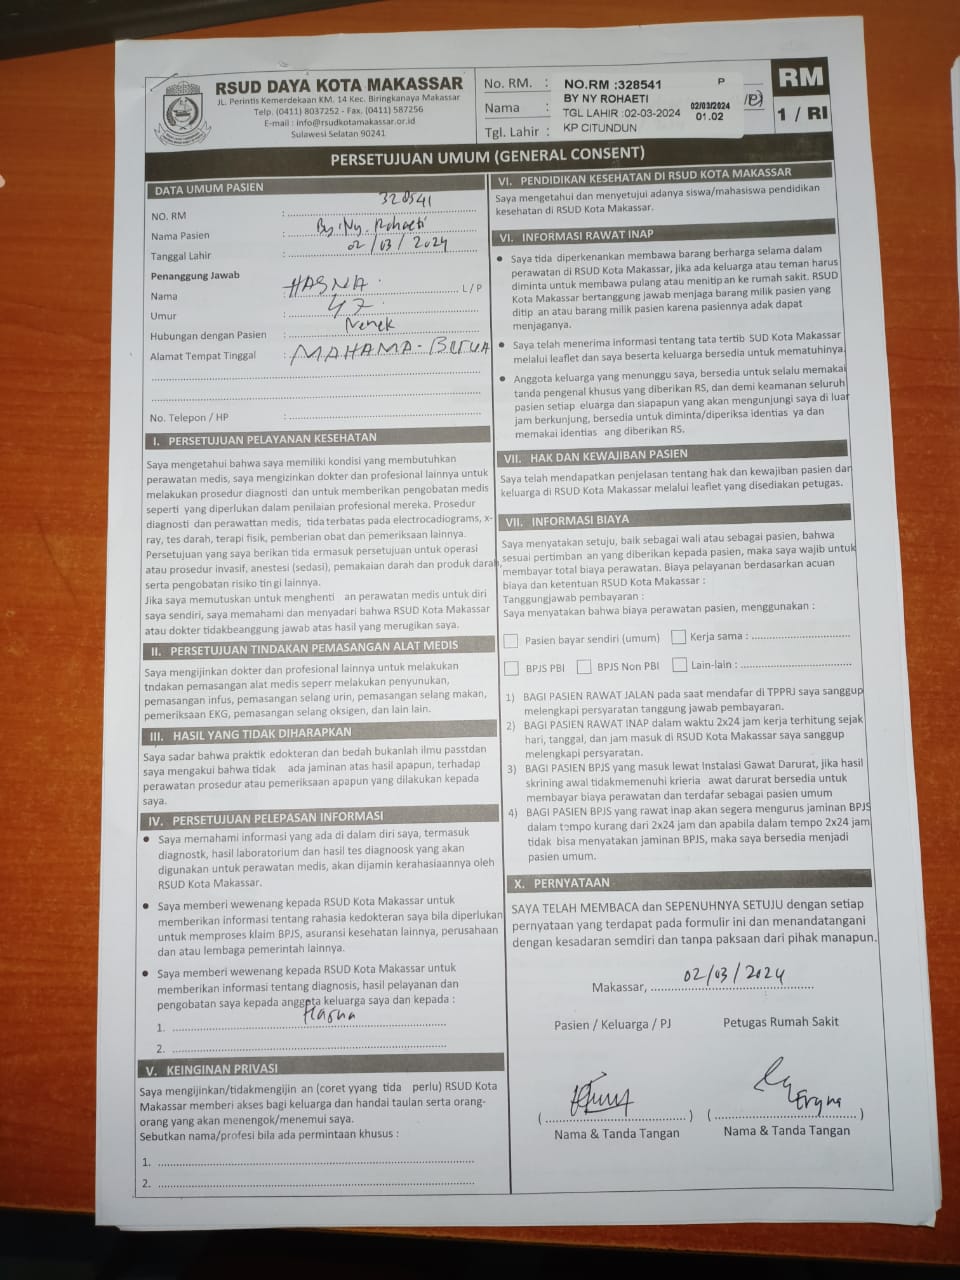 RSUD DAYA KOTA MAKASSAR
JL. Perintis Kemerdekaan KM. 14 Kec. Biringkanaya Makassar
Telp. (0411) 8037252 - Fax. (0411) 587256
E-mail : info@rsudkotamakassar.or.id
Sulawesi Selatan 90241
No. RM. :
Nama :
Tgl. Lahir :
NO.RM :328541 P
BY NY ROHAETI
TGL LAHIR :02-03-2024
KP CITUNDUN
02/03/2024
01.02
RM
1 / RI
PERSETUJUAN UMUM (GENERAL CONSENT)
DATA UMUM PASIEN
NO. RM : 328541
Nama Pasien : By. Ny. Rohaeti
Tanggal Lahir : 02/03/2024
Penanggung Jawab
Nama : HASNA L/P
Umur : 47
Hubungan dengan Pasien : Nenek
Alamat Tempat Tinggal : MAHAMA-
No. Telepon / HP :
I. PERSETUJUAN PELAYANAN KESEHATAN
Saya mengetahui bahwa saya memiliki kondisi yang membutuhkan
perawatan medis, saya mengizinkan dokter dan profesional lainnya untuk
melakukan prosedur diagnosti dan untuk memberikan pengobatan medis
seperti yang diperlukan dalam penilaian profesional mereka. Prosedur
diagnosti dan perawattan medis, tida terbatas pada electrocadiograms, x-
ray, tes darah, terapi fisik, pemberian obat dan pemeriksaan lainnya.
Persetujuan yang saya berikan tida ermasuk persetujuan untuk operasi
atau prosedur invasif, anestesi (sedasi), pemakaian darah dan produk darah,
serta pengobatan risiko tin gi lainnya.
Jika saya memutuskan untuk menghenti an perawatan medis untuk diri
saya sendiri, saya memahami dan menyadari bahwa RSUD Kota Makassar
atau dokter tidakbeanggung jawab atas hasil yang merugikan saya.
II. PERSETUJUAN TINDAKAN PEMASANGAN ALAT MEDIS
Saya mengijinkan dokter dan profesional lainnya untuk melakukan
tndakan pemasangan alat medis seperr melakukan penyunukan,
pemasangan infus, pemasangan selang urin, pemasangan selang makan,
pemeriksaan EKG, pemasangan selang oksigen, dan lain lain.
III. HASIL YANG TIDAK DIHARAPKAN
Saya sadar bahwa praktik edokteran dan bedah bukanlah ilmu passtdan
saya mengakui bahwa tidak ada jaminan atas hasil apapun, terhadap
perawatan prosedur atau pemeriksaan apapun yang dilakukan kepada
saya.
IV. PERSETUJUAN PELEPASAN INFORMASI
• Saya memahami informasi yang ada di dalam diri saya, termasuk
diagnostk, hasil laboratorium dan hasil tes diagnoosk yang akan
digunakan untuk perawatan medis, akan dijamin kerahasiaannya oleh
RSUD Kota Makassar.
• Saya memberi wewenang kepada RSUD Kota Makassar untuk
memberikan informasi tentang rahasia kedokteran saya bila diperlukan
untuk memproses klaim BPJS, asuransi kesehatan lainnya, perusahaan
dan atau lembaga pemerintah lainnya.
• Saya memberi wewenang kepada RSUD Kota Makassar untuk
memberikan informasi tentang diagnosis, hasil pelayanan dan
pengobatan saya kepada anggota keluarga saya dan kepada :
1. Hasna
2.
V. KEINGINAN PRIVASI
Saya mengijinkan/tidakmengijin an (coret yyang tida perlu) RSUD Kota
Makassar memberi akses bagi keluarga dan handai taulan serta orang-
orang yang akan menengok/menemui saya.
Sebutkan nama/profesi bila ada permintaan khusus :
1.
2.
VI. PENDIDIKAN KESEHATAN DI RSUD KOTA MAKASSAR
Saya mengetahui dan menyetujui adanya siswa/mahasiswa pendidikan
kesehatan di RSUD Kota Makassar.
VI. INFORMASI RAWAT INAP
• Saya tida diperkenankan membawa barang berharga selama dalam
perawatan di RSUD Kota Makassar, jika ada keluarga atau teman harus
diminta untuk membawa pulang atau menitipkan ke rumah sakit. RSUD
Kota Makassar bertanggung jawab menjaga barang milik pasien yang
ditip an atau barang milik pasien karena pasiennya adak dapat
menjaganya.
• Saya telah menerima informasi tentang tata tertib SUD Kota Makassar
melalui leaflet dan saya beserta keluarga bersedia untuk mematuhinya.
• Anggota keluarga yang menunggu saya, bersedia untuk selalu memakai
tanda pengenal khusus yang diberikan RS, dan demi keamanan seluruh
pasien setiap eluarga dan siapapun yang akan mengunjungi saya di luar
jam berkunjung, bersedia untuk diminta/diperiksa identias ya dan
memakai identias ang diberikan RS.
VII. HAK DAN KEWAJIBAN PASIEN
Saya telah mendapatkan penjelasan tentang hak dan kewajiban pasien dan
keluarga di RSUD Kota Makassar melalui leaflet yang disediakan petugas.
VII. INFORMASI BIAYA
Saya menyatakan setuju, baik sebagai wali atau sebagai pasien, bahwa
sesuai pertimban an yang diberikan kepada pasien, maka saya wajib untuk
membayar total biaya perawatan. Biaya pelayanan berdasarkan acuan
biaya dan ketentuan RSUD Kota Makassar :
Tanggungjawab pembayaran :
Saya menyatakan bahwa biaya perawatan pasien, menggunakan :
Pasien bayar sendiri (umum) Kerja sama :
BPJS PBI BPJS Non PBI Lain-lain :
1) BAGI PASIEN RAWAT JALAN pada saat mendafar di TPPRJ saya sanggup
melengkapi persyaratan tanggung jawab pembayaran.
2) BAGI PASIEN RAWAT INAP dalam waktu 2x24 jam kerja terhitung sejak
hari, tanggal, dan jam masuk di RSUD Kota Makassar saya sanggup
melengkapi persyaratan.
3) BAGI PASIEN BPJS yang masuk lewat Instalasi Gawat Darurat, jika hasil
skrining awal tidakmemenuhi krieria awat darurat bersedia untuk
membayar biaya perawatan dan terdafar sebagai pasien umum
4) BAGI PASIEN BPJS yang rawat inap akan segera mengurus jaminan BPJS
dalam tempo kurang dari 2x24 jam dan apabila dalam tempo 2x24 jam
tidak bisa menyatakan jaminan BPJS, maka saya bersedia menjadi
pasien umum.
X. PERNYATAAN
SAYA TELAH MEMBACA dan SEPENUHNYA SETUJU dengan setiap
pernyataan yang terdapat pada formulir ini dan menandatangani
dengan kesadaran semdiri dan tanpa paksaan dari pihak manapun.
Makassar, 02/03/2024
Pasien / Keluarga / PJ Petugas Rumah Sakit
Nama & Tanda Tangan Nama & Tanda Tangan